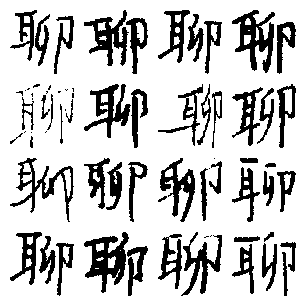 聊聊聊聊
聊聊聊聊
聊聊聊聊
聊聊聊聊